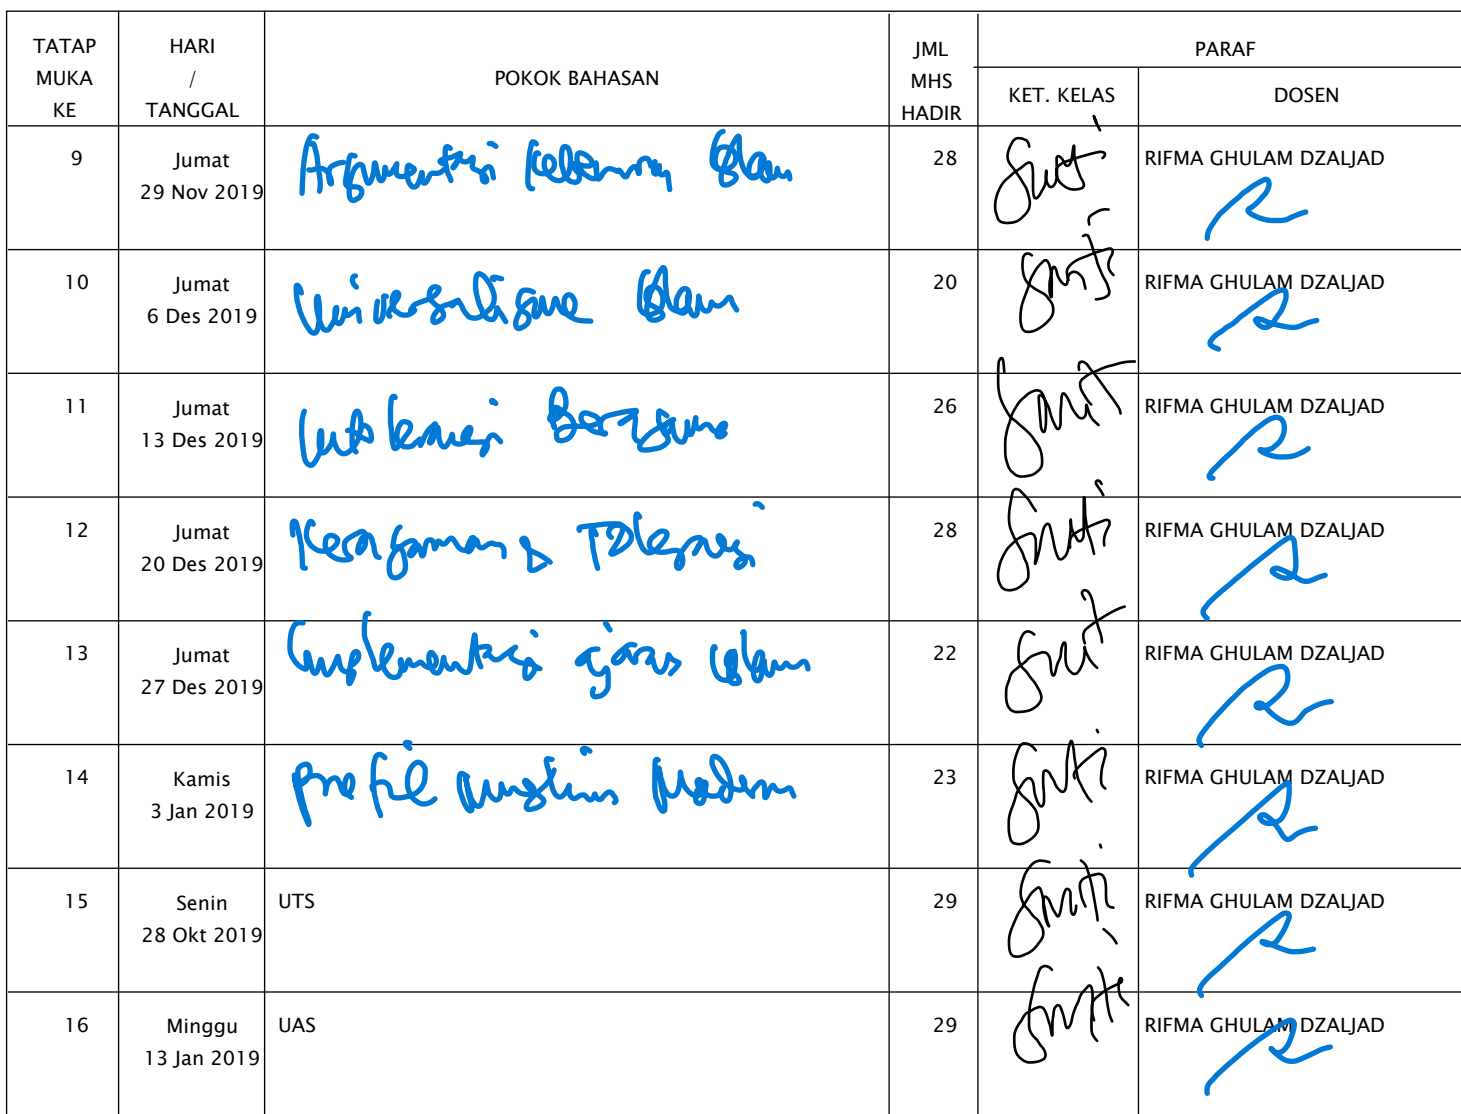 TATAP MUKA KE HARI / TANGGAL POKOK BAHASAN JML MHS HADIR PARAF
KET. KELAS DOSEN
9 Jumat 29 Nov 2019 Argumentasi Kebenaran Islam 28 RIFMA GHULAM DZALJAD
10 Jumat 6 Des 2019 Universalisme Islam 20 RIFMA GHULAM DZALJAD
11 Jumat 13 Des 2019 Intoleransi Beragama 26 RIFMA GHULAM DZALJAD
12 Jumat 20 Des 2019 Keragaman & Toleransi 28 RIFMA GHULAM DZALJAD
13 Jumat 27 Des 2019 Implementasi ajaran Islam 22 RIFMA GHULAM DZALJAD
14 Kamis 3 Jan 2019 Profil muslim Modern 23 RIFMA GHULAM DZALJAD
15 Senin 28 Okt 2019 UTS 29 RIFMA GHULAM DZALJAD
16 Minggu 13 Jan 2019 UAS 29 RIFMA GHULAM DZALJAD